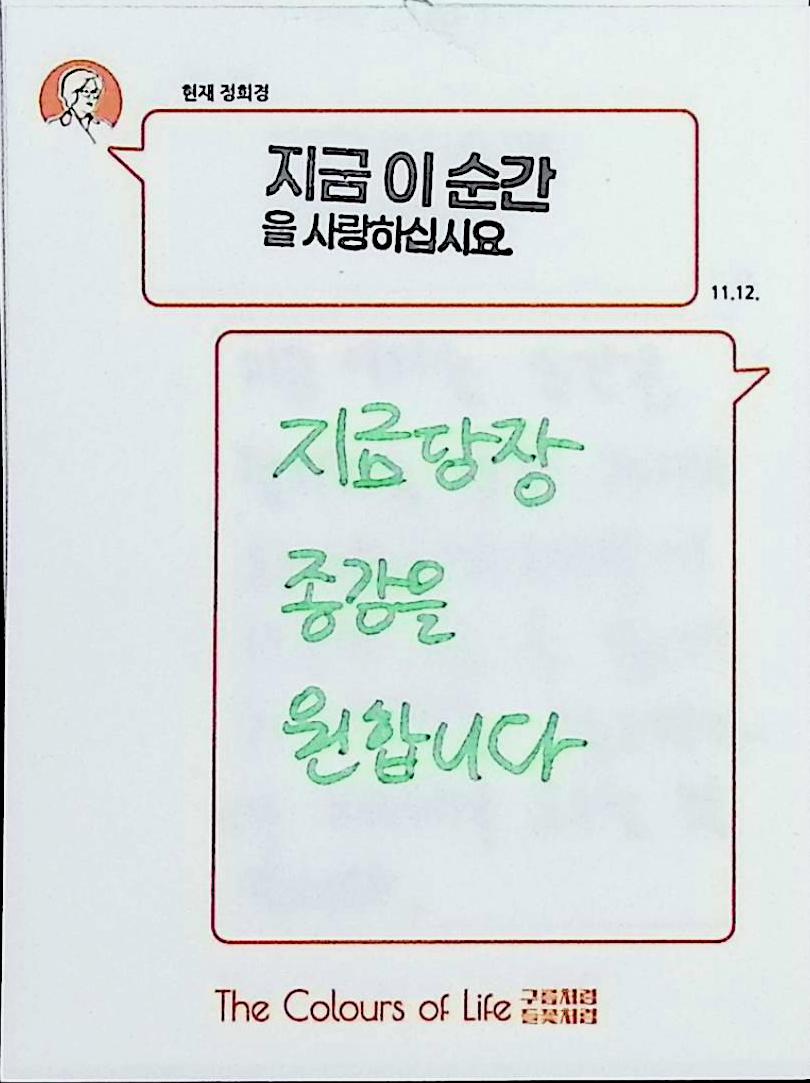 현재 정희경
지금 이 순간
을 사랑하십시요.
11.12.
지금당장
종강을
원합니다
The Colours of Life 구름처럼
들꽃처럼